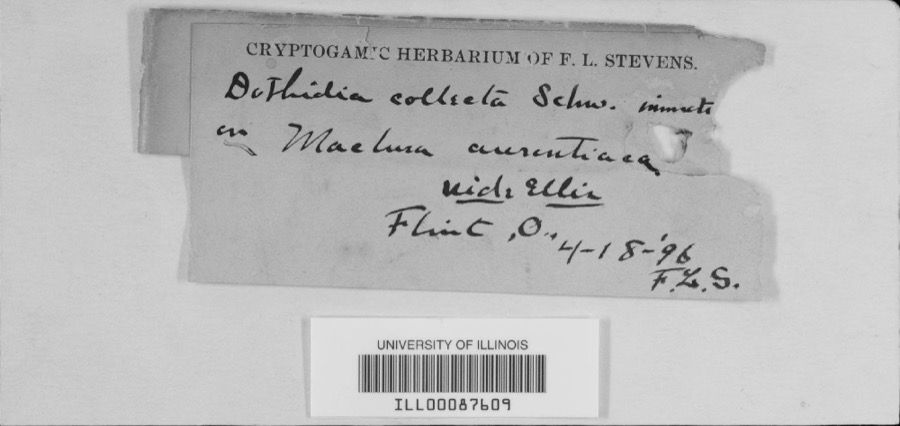 CRYPTOGAMIC HERBARIUM OF F. L. STEVENS.
Dothidia collecta Schw.
on Maclura aurentiaca
vide Ellis
Flint, O., 4-18-'96
F.L.S.
UNIVERSITY OF ILLINOIS
ILL00087609